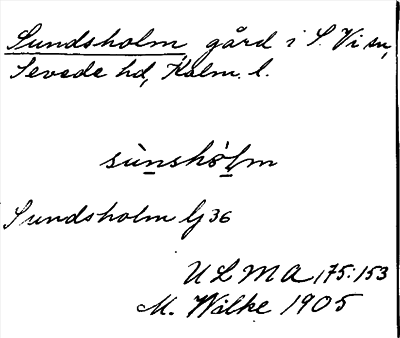 Sundsholm, gård i S. Vi sn,
Sevede hd, Kalm. l.
sùnshò̀lm
Sundsholm Gj 36
ULMA 175:153
M. Wilke 1905